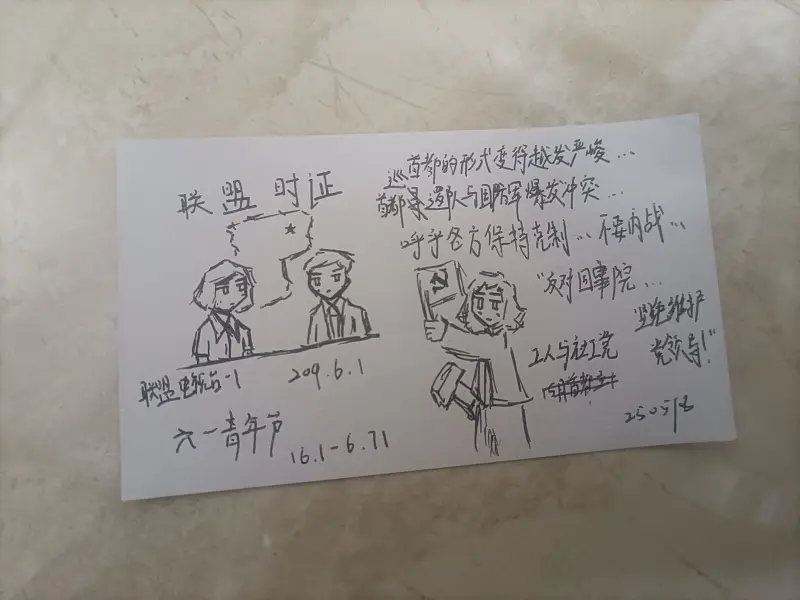 联盟时证
首都的形式变得越发严峻...
首都巡逻队与国防军爆发冲突...
呼乎各方保持克制...不要内战...
"反对国事院...
坚绝维护
党领导!"
工人与社工党
联盟电视台-1
209.6.1
六一青年节
16.1-6.71